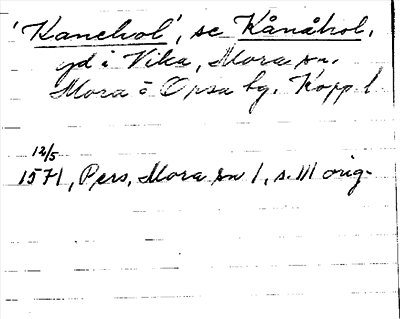 'Kanehol', se Kånåhol,
yd i Vika, Mora sn,
Mora o Orsa tg. Kopp l
12/5
1571, Pers, Mora sn 1, s. 111 orig.